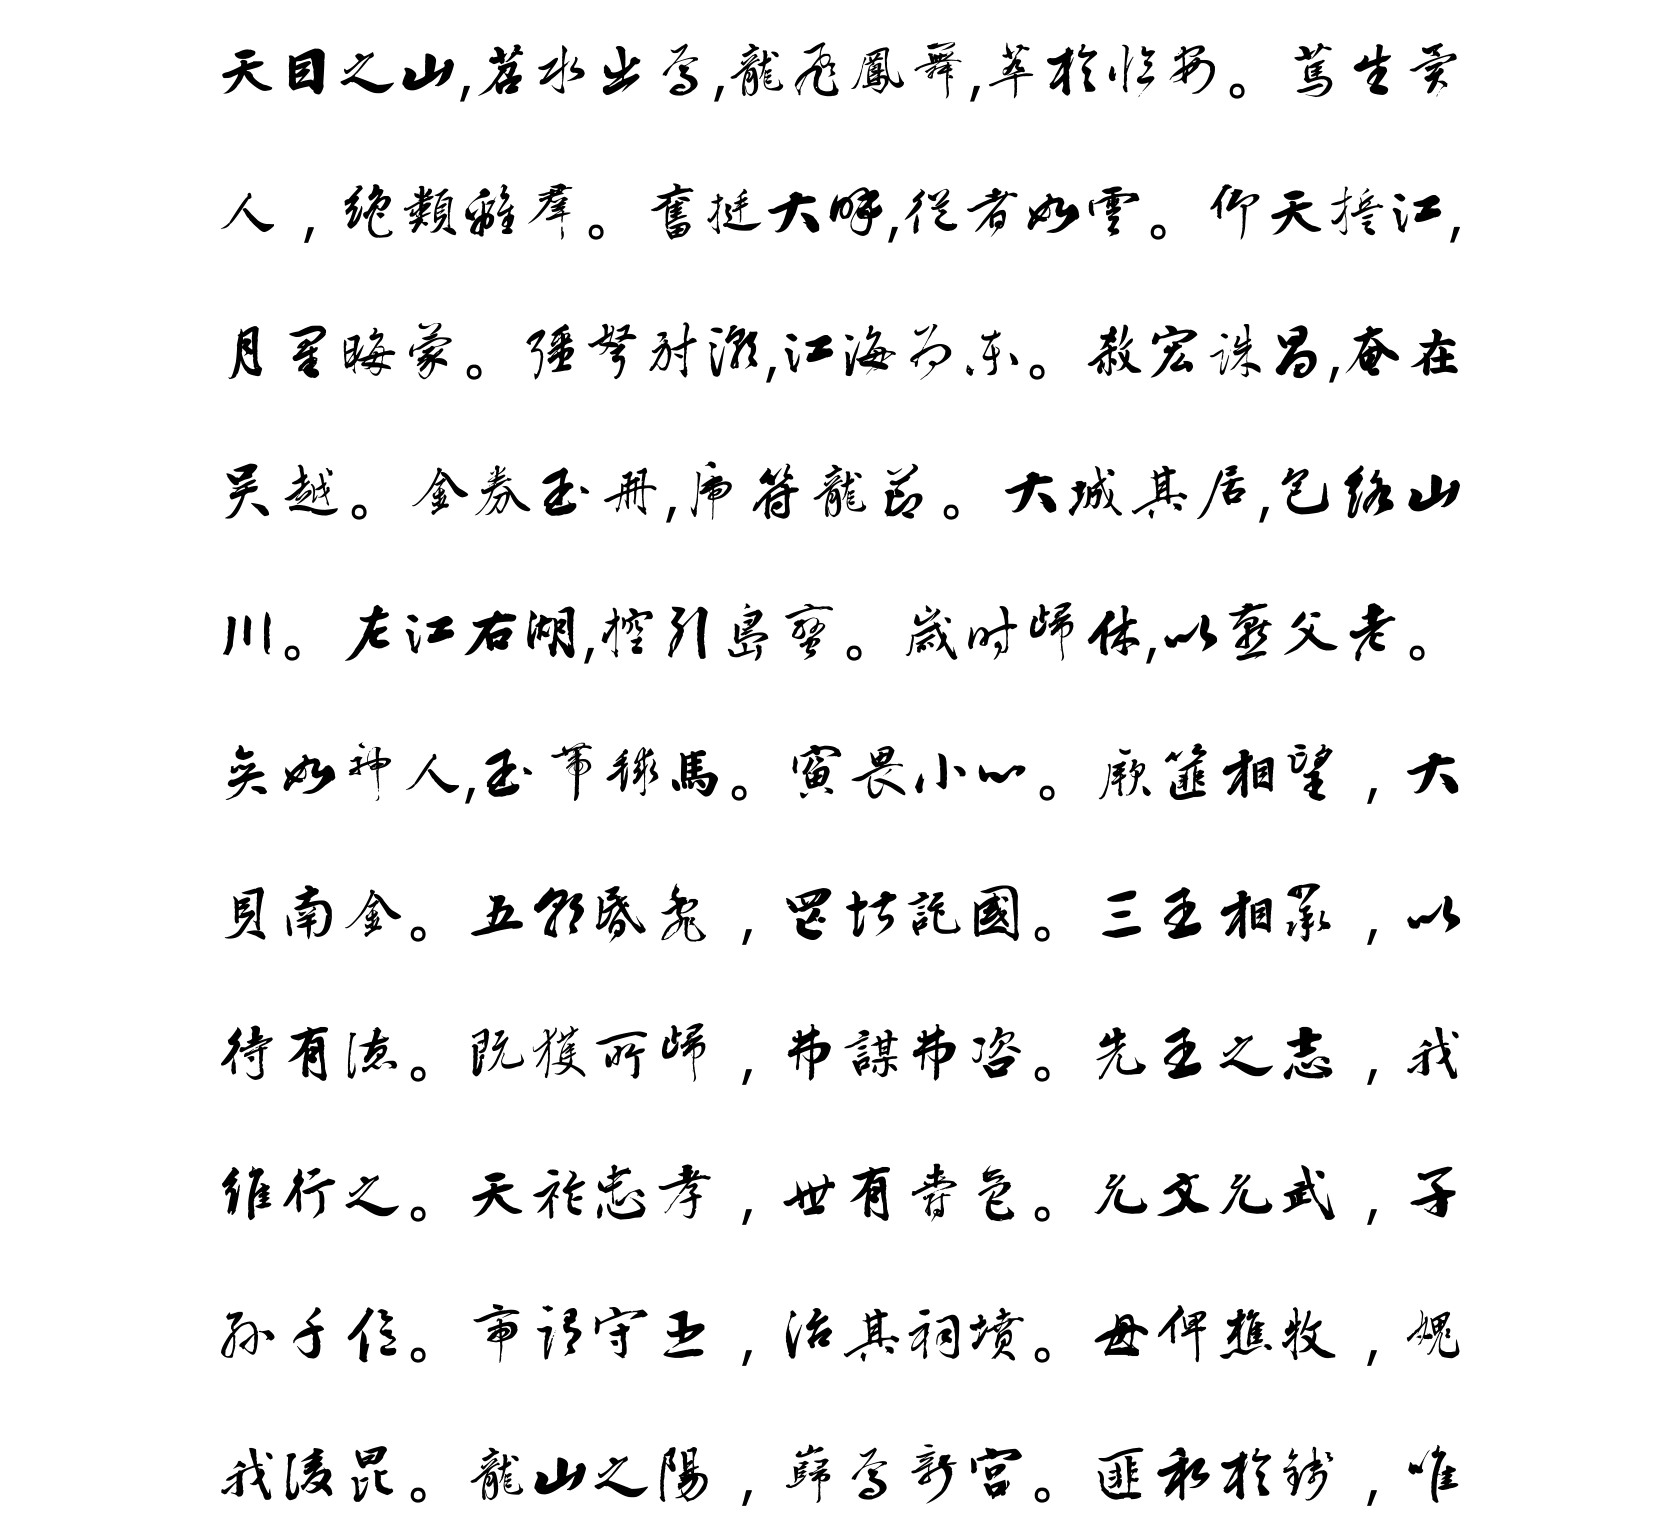 天目之山,苕水出焉,龍飛鳳舞,萃於臨安。篤生異
人，絕類離羣。奮挺大呼,從者如雲。仰天誓江,
月星晦蒙。彊弩射潮,江海為東。殺宏誅昌,奄在
吳越。金券玉冊,虎符龍節。大城其居,包絡山
川。左江右湖,控引島蠻。歲時歸休,以燕父老。
奕如神人,玉帶毬馬。寅畏小心。厥篚相望，大
貝南金。五朝昏亂，罔堪託國。三王相承，以
待有德。既獲所歸，弗謀弗咨。先王之志，我
維行之。天祚忠孝，世有爵邑。允文允武，子
孫千億。帝謂守臣，治其祠墳。毋俾樵牧，愧
我後昆。龍山之陽，巋焉新宮。匪私於錢，唯